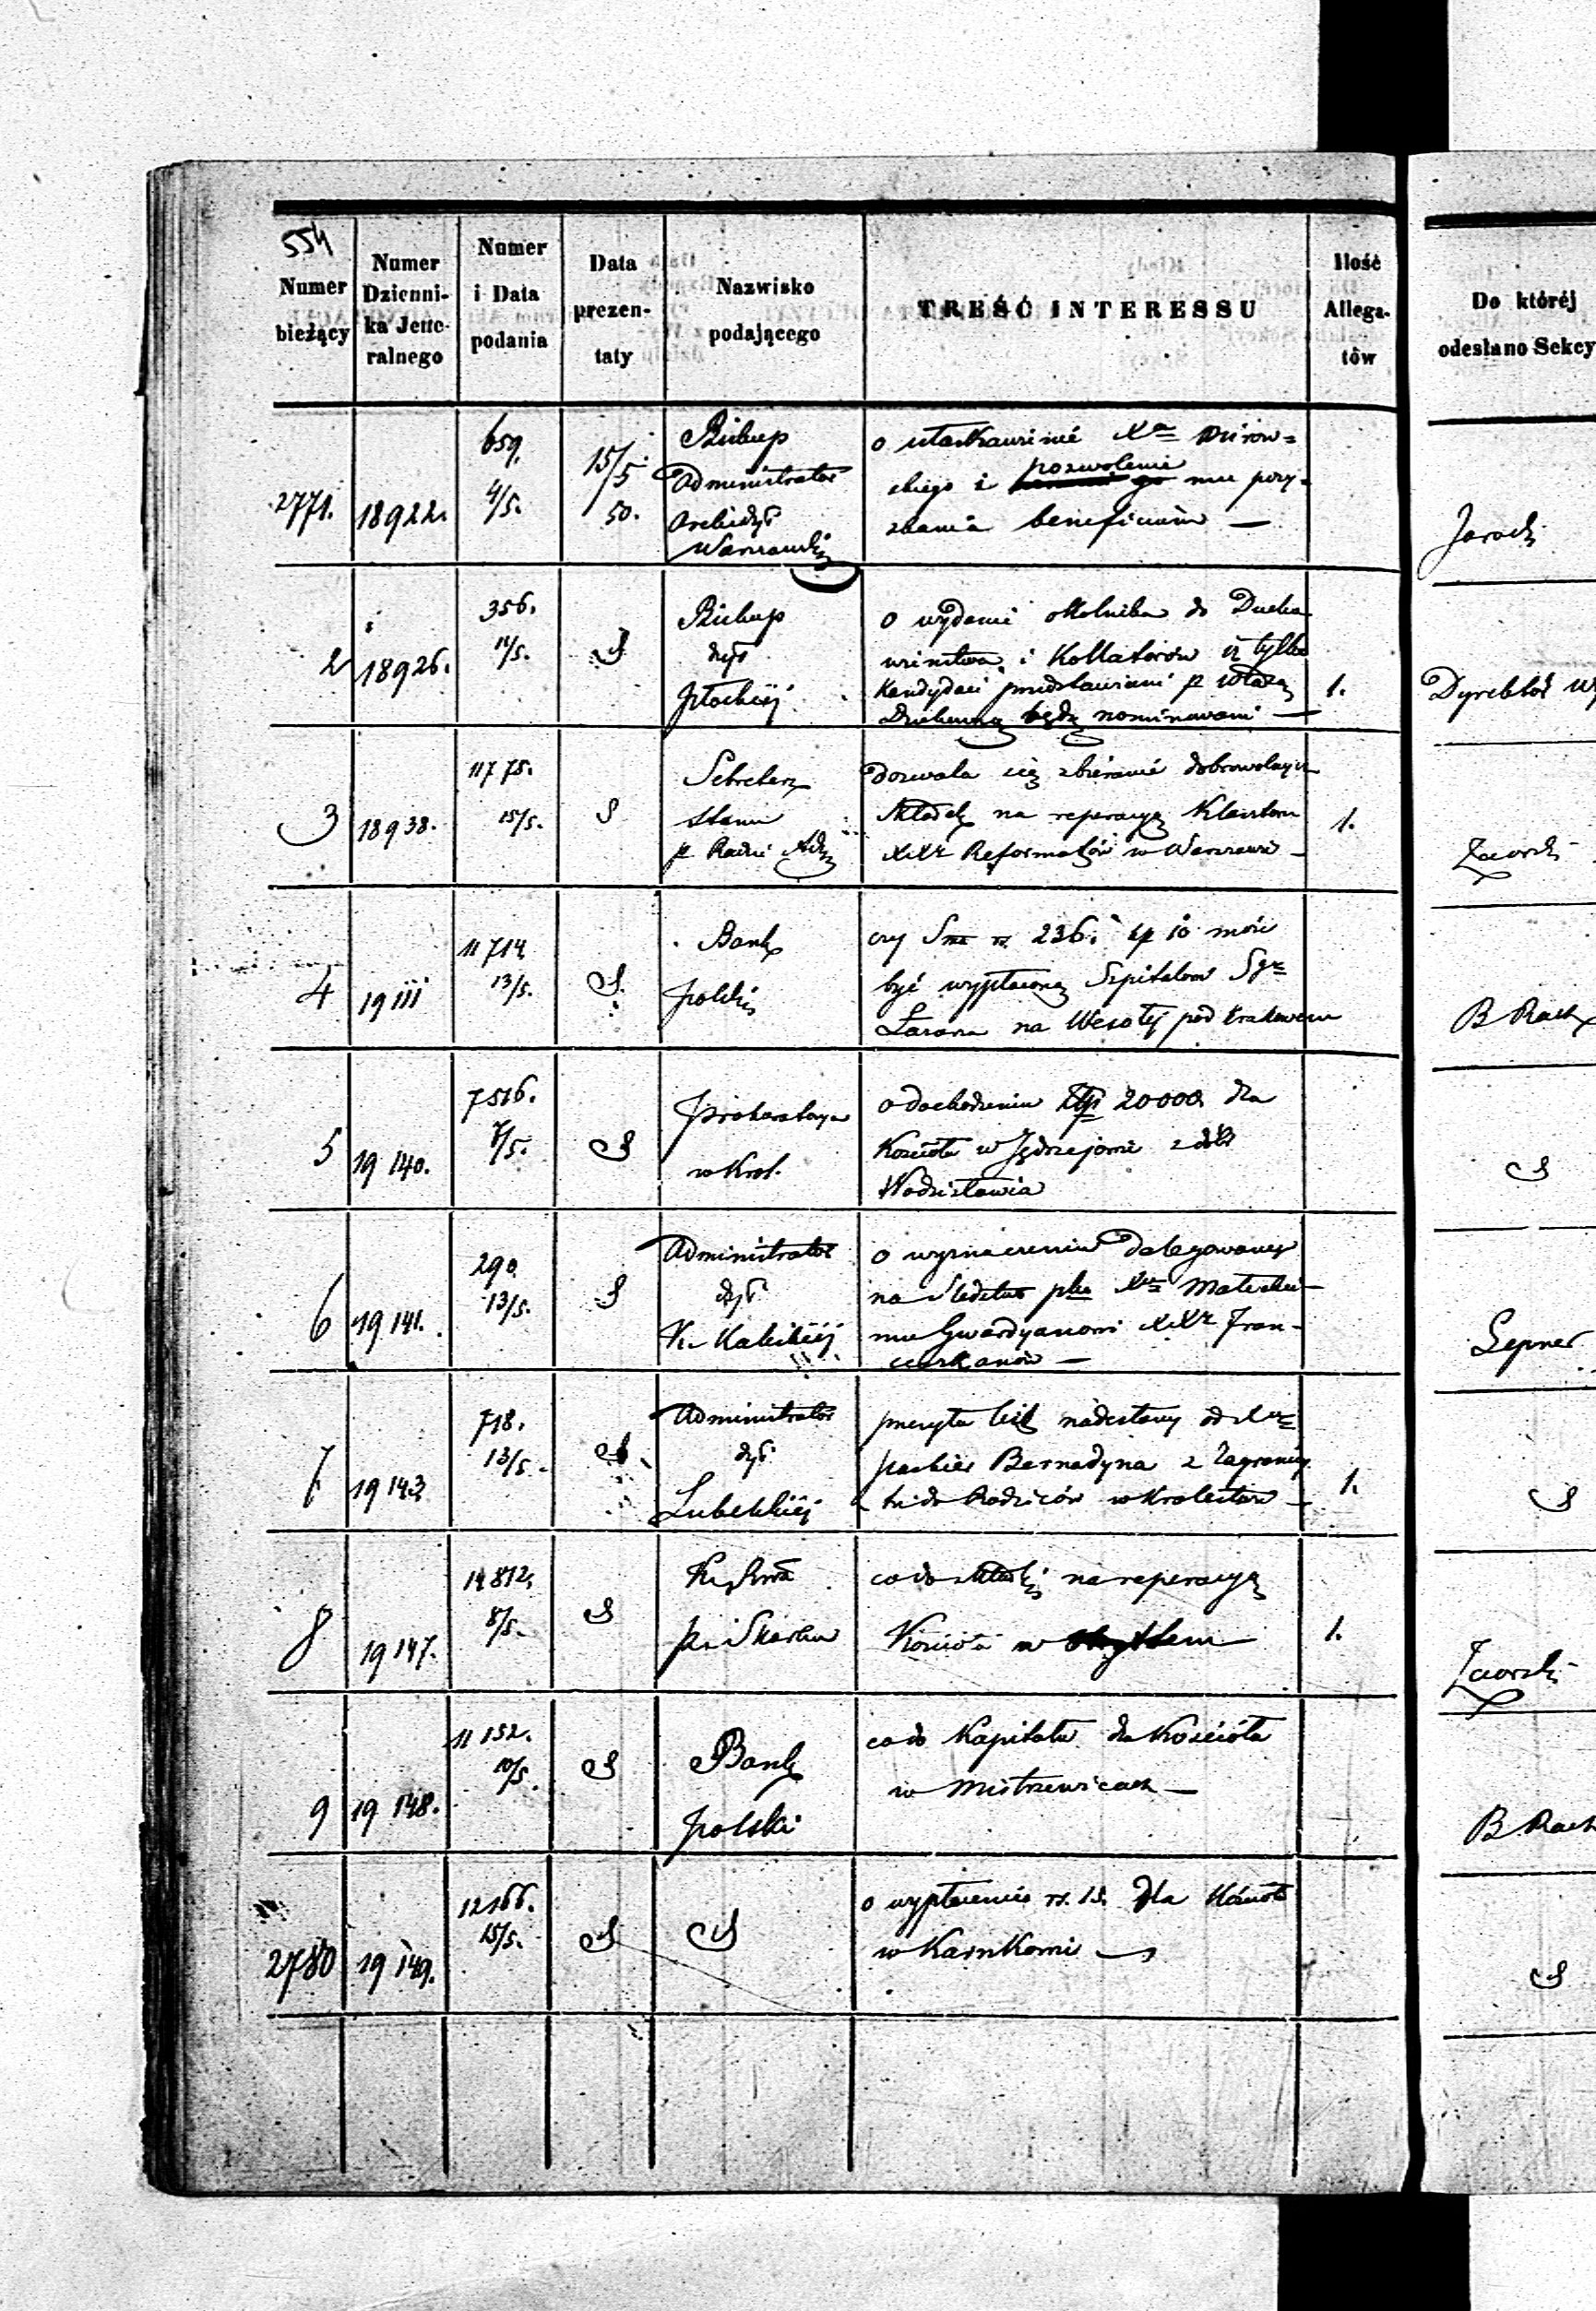 554
Numer bieżący
Numer Dzienni-ka Jene-ralnego
Numer i Data podania
Data prezen-taty
Nazwisko podającego
TREŚĆ INTERESSU
Ilość Allega-tów
Do któréj odesłano Sekcy
2771. 18922. 659. 4/5. 15/5. 50. Biskup
Administrator
Archidyi
Warszawskiej
o ułaskawienie Xa
skiego i pozwolenie mu pozy-
skania beneficium —
Jarocki
2 18926. 356. 11/5. S Biskup
dyi
Płockiej
o wydanie okolnika do Ducho
wieństwa i Kollatorów iż tylko
Kandydaci przedstawieni p władzę
Duchowną będą nominowani —
1.
Dyrektor
3 18938. 11775. 15/5. S Sekretarz
Stanu
p Radzie Adz
dozwala się zbieranie dobrowolnych
składek na reperacyą Klasztoru
XXr Reformatów w Warszawie —
1.
Zaorski
4 19111 11714. 13/5. S. Bank
Polski
czy Sma rs. 236. kp 10 może
być wypłaconą Szpitalowi Sgo
Łazarza na Wesołej pod Krakowem
B Rack
5 19140. 7516. 7/5. S Prokuratorya
w Król.
o dochodzeniu Złp 20000 dla
Kościoła w Jędrzejowie z dóbr
Wodzisławia
S
6 19141. 290. 13/5. S Administrator
dyi
K. Kaliskiej
o wyznaczenie Delegowanego
na śledztwo pko Xu
mu Gwardyanowi XXr Fran-
ciszkanów —
Lepner
7 19143 718. 13/5. S. Administrator
dyi
Lubelskiej
przesyła list nadesłany od Xa
Bernadyna z Zagranicy
do Rodziców w Królestwie —
1.
S
8 19147. 14812. 8/5. S
p. i Skarbu
co do składki na reperacyą
Kościoła w
1.
Zaorski
9 19148. 11152. 10/5. S Bank
Polski
co do Kapitału dla Kościoła
w Mistrzewicach —
B Rack
2780 19149. 12166. 15/5. S S
o wypłacenie rs. 15. dla Kościoła
w Karnkowie —
S